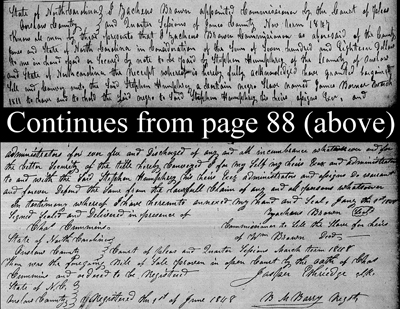 State of North Carolina } Zacheus Brown appointed Commissioner by the Court of pleas
Onslow County } and Quarter Sessions of Jones County Nov Term 1847
Know all men by these presents that I Zacheus Brown Commissioner as aforesaid of the County
and State of North Carolina in Consideration of the Sum of Four hundred and Eighteen Dollars
to me in hand paid or Secured by note to be paid by Stephen Humphrey of the County of Onslow and
State of North Carolina the Receipt whereof is hereby fully acknowledged have granted bargained
Sell and convey unto the Said Stephen Humphrey a certain negro slave named James
to have and to hold the Said negro to Said Stephen Humphrey his heirs assigns Exr, and
Continues from page 88 (above)
administrators for ever free and Discharged of any and all incumbrance whatsoever and for
the better Security of the title hereby Conveyed I for my Self my heirs Exrs and Administrators
to and with the Said Stephen Humphrey his heirs Exrs administrators and assigns do warrant
and forever Defend the Same from the lawful claim of any and all persons whatsoever
In testimony whereof I have hereunto annexed my hand and Seal, Jany the 1st 1848
Signed Sealed and Delivered in presence of Zacheus Brown Seal
Chas Cummins. Commissioner to Sell the Slave for heirs
State of North Carolina of Brown Decd
Onslow County } Court of pleas and Quarter Sessions March term 1848
Then was the foregoing Bill of Sale proven in open Court by the oath of Chas
Cummins and ordered to be Registered Jasper Etheridge clk.
State of N.C. }
Onslow County } Registered the 1st of June 1848 B McBarry Regstr